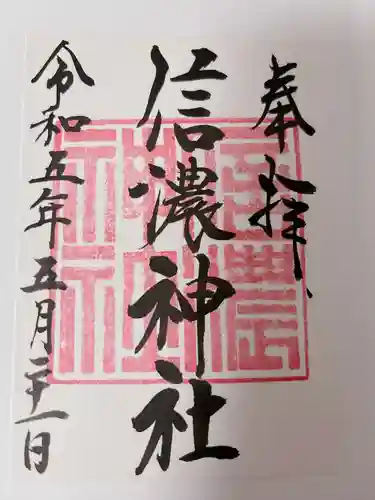 奉拝
信濃神社
令和五年五月二十一日
信濃神社